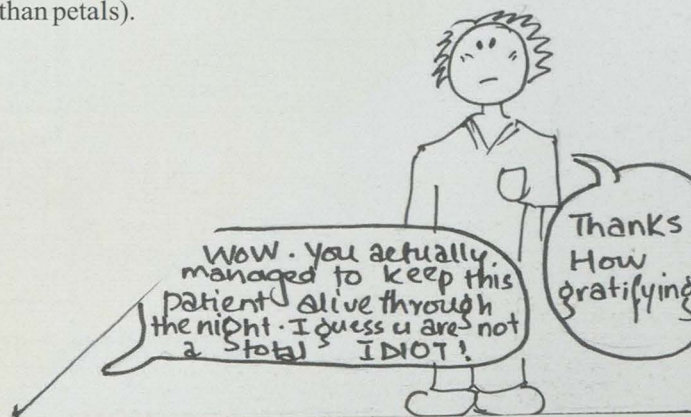 than petals).
WOW. You actually.
managed to keep this
patient alive through
the night. I guess u are not
a total IDIOT!
Thanks
How
gratifying